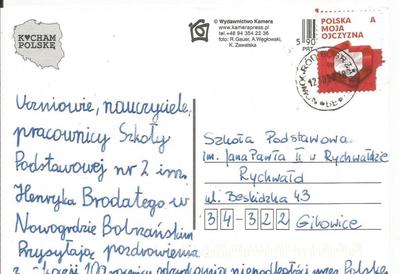 KOCHAM
POLSKĘ
© Wydawnictwo Kamera
www.kamerapress.pl
tel.+48 94 354 22 36
foto: R. Gauer, A.Węglowski,
K. Zawalska
POLSKA A
MOJA
OJCZYZNA
Uczniowie, nauczyciele,
pracownicy Szkoły
Podstawowej nr 2 im.
Henryka Brodatego w
Nowogrodzie Bobrzańskim
Przysyłają pozdrowienia
100 rocznicy odzyskania niepodległości przez Polskę
Szkoła Podstawowa
im. Jana Pawła II w Rychwałdzie
Rychwałd
ul. Beskidzka 43
34-322 Gilowice